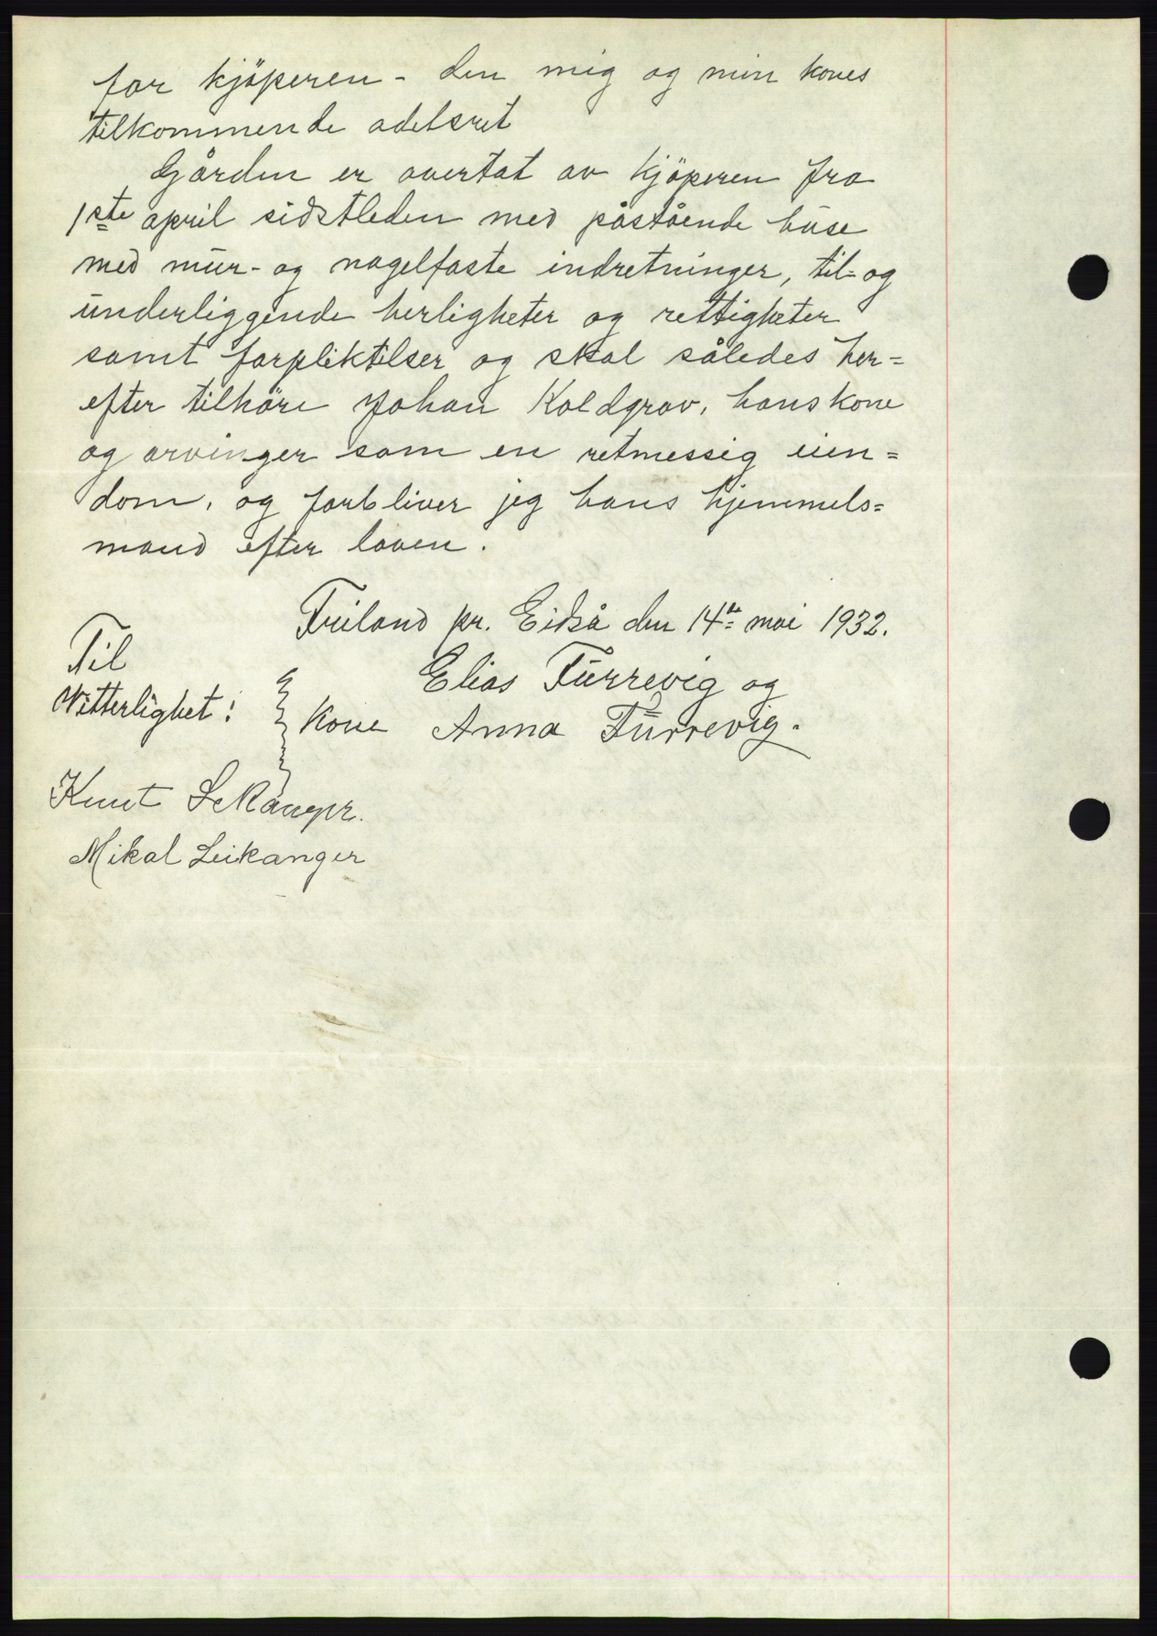 for kjöperen - den mig og min kones
tilkommende odelsret
Gården er overtat av kjöperen fra
1ste april sidstleden med påstående huse
med mur- og nagelfaste indretninger, til- og
underliggende herligheter og rettigheter
samt forpliktelser og skal således her=
efter tilhöre Johan Koldgrov, hans kone
og arvinger som en retmessig eien=
dom, og forbliver jeg hans hjemmels=
mand efter loven.
Friland pr. Eidså den 14de mai 1932.
Til
Vitterlighet:
Elias Furrevig og
Kone Anna Furrevig.
Knut Lekanger.
Mikal Leikanger